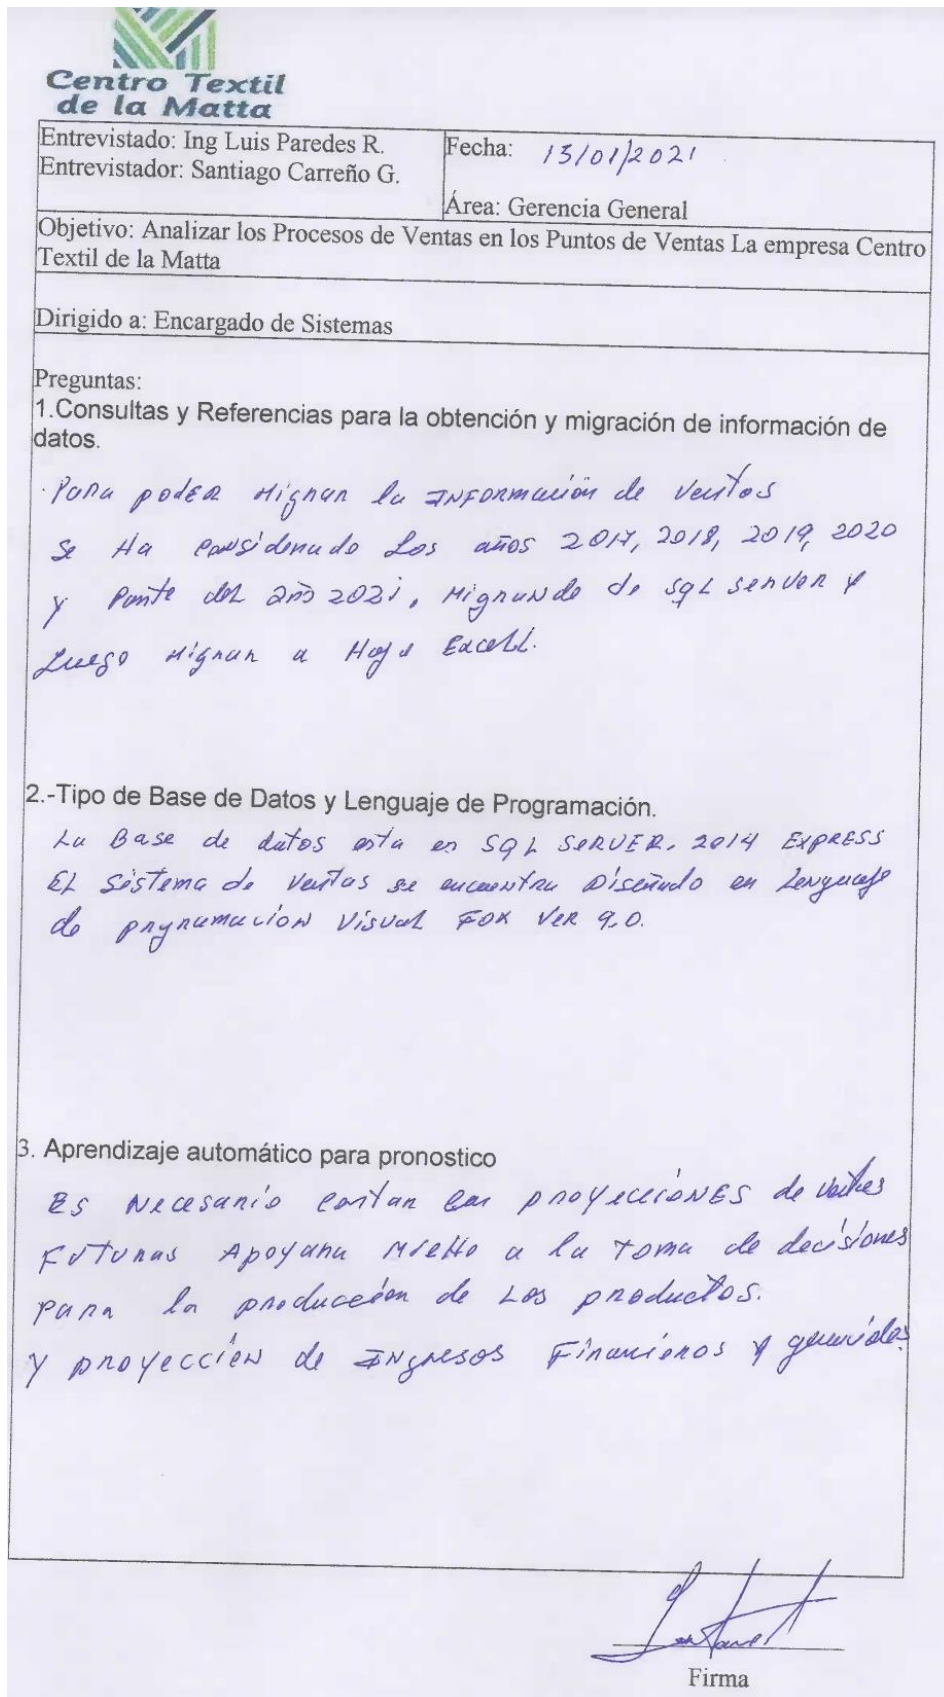 Centro Textil
de la Matta
Entrevistado: Ing Luis Paredes R.
Entrevistador: Santiago Carreño G.
Fecha: 13/01/2021
Área: Gerencia General
Objetivo: Analizar los Procesos de Ventas en los Puntos de Ventas La empresa Centro
Textil de la Matta
Dirigido a: Encargado de Sistemas
Preguntas:
1.Consultas y Referencias para la obtención y migración de información de
datos.
Para poder Migrar la Información de Ventas
Se Ha considerado Los años 2017, 2018, 2019, 2020
y Parte del año 2021, Migrando de SQL Server y
Luego Migrar a Hoja Excell.
2.-Tipo de Base de Datos y Lenguaje de Programación.
La Base de datos esta en SQL SERVER. 2014 EXPRESS
El Sistema de Ventas se encuentra Diseñado en Lenguaje
de programación Visual Fox Ver 9.0.
3. Aprendizaje automático para pronostico
Es Necesario contar con proyecciones de Ventas
Futuras Apoyara a la Toma de decisiones
para la producción de Los productos.
y proyección de Ingresos Financieros y
Firma